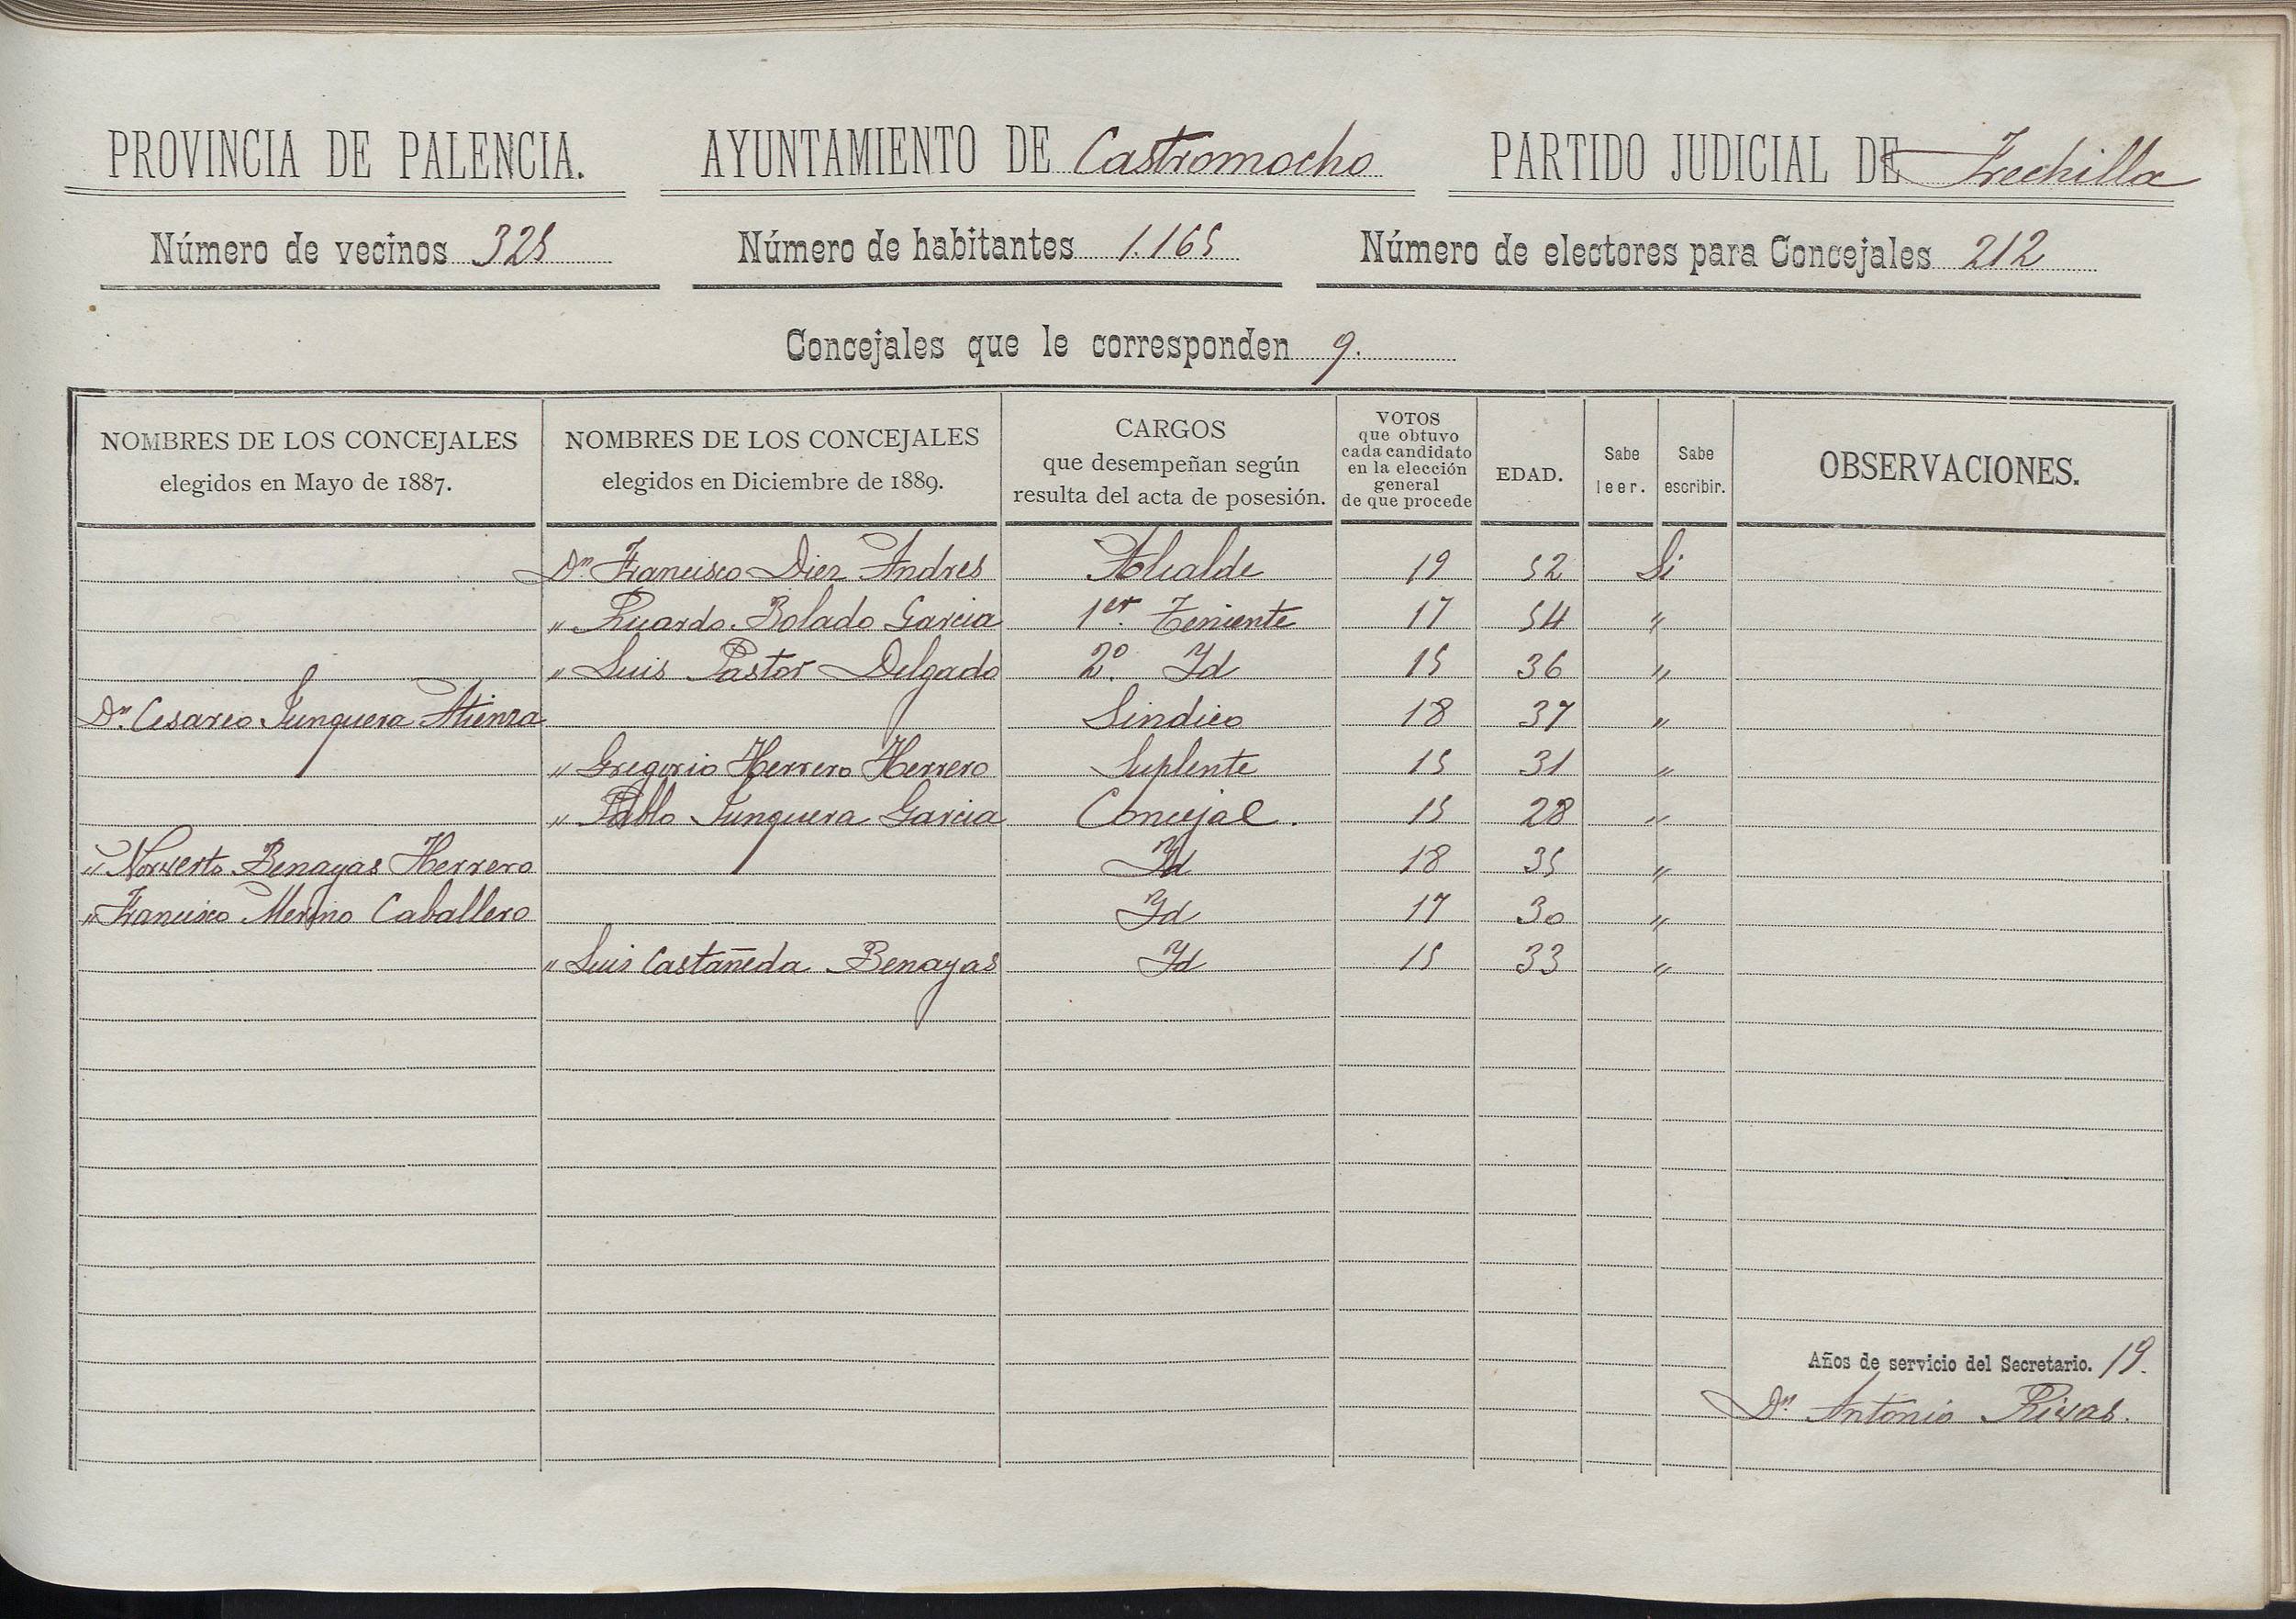 PROVINCIA DE PALENCIA. AYUNTAMIENTO DE Castromocho PARTIDO JUDICIAL DE Frechilla
Número de vecinos 325 Número de habitantes 1.165 Número de electores para Concejales 212
Concejales que le corresponden 9.
NOMBRES DE LOS CONCEJALES elegidos en Mayo de 1887. NOMBRES DE LOS CONCEJALES elegidos en Diciembre de 1889. CARGOS que desempeñan según resulta del acta de posesión. VOTOS que obtuvo cada candidato en la elección general de que procede EDAD. Sabe leer. Sabe escribir. OBSERVACIONES.
Dn. Francisco Diez Andres Alcalde 19 52 Si
" Ricardo Bolado Garcia 1er. Teniente 17 54 "
" Luis Pastor Delgado 2º. Id 15 36 "
Dn. Cesareo Junquera Atienza Sindico 18 37 "
" Gregorio Herrero Herrero Suplente 15 31 "
" Pablo Junquera Garcia Concejal. 15 28 "
" Norverto Benayas Herrero Id 18 35 "
" Francisco Merino Caballero Id 17 30 "
" Luis Castañeda Benayas Id 15 33 "
Años de servicio del Secretario. 19.
Dn. Antonio Rivas.